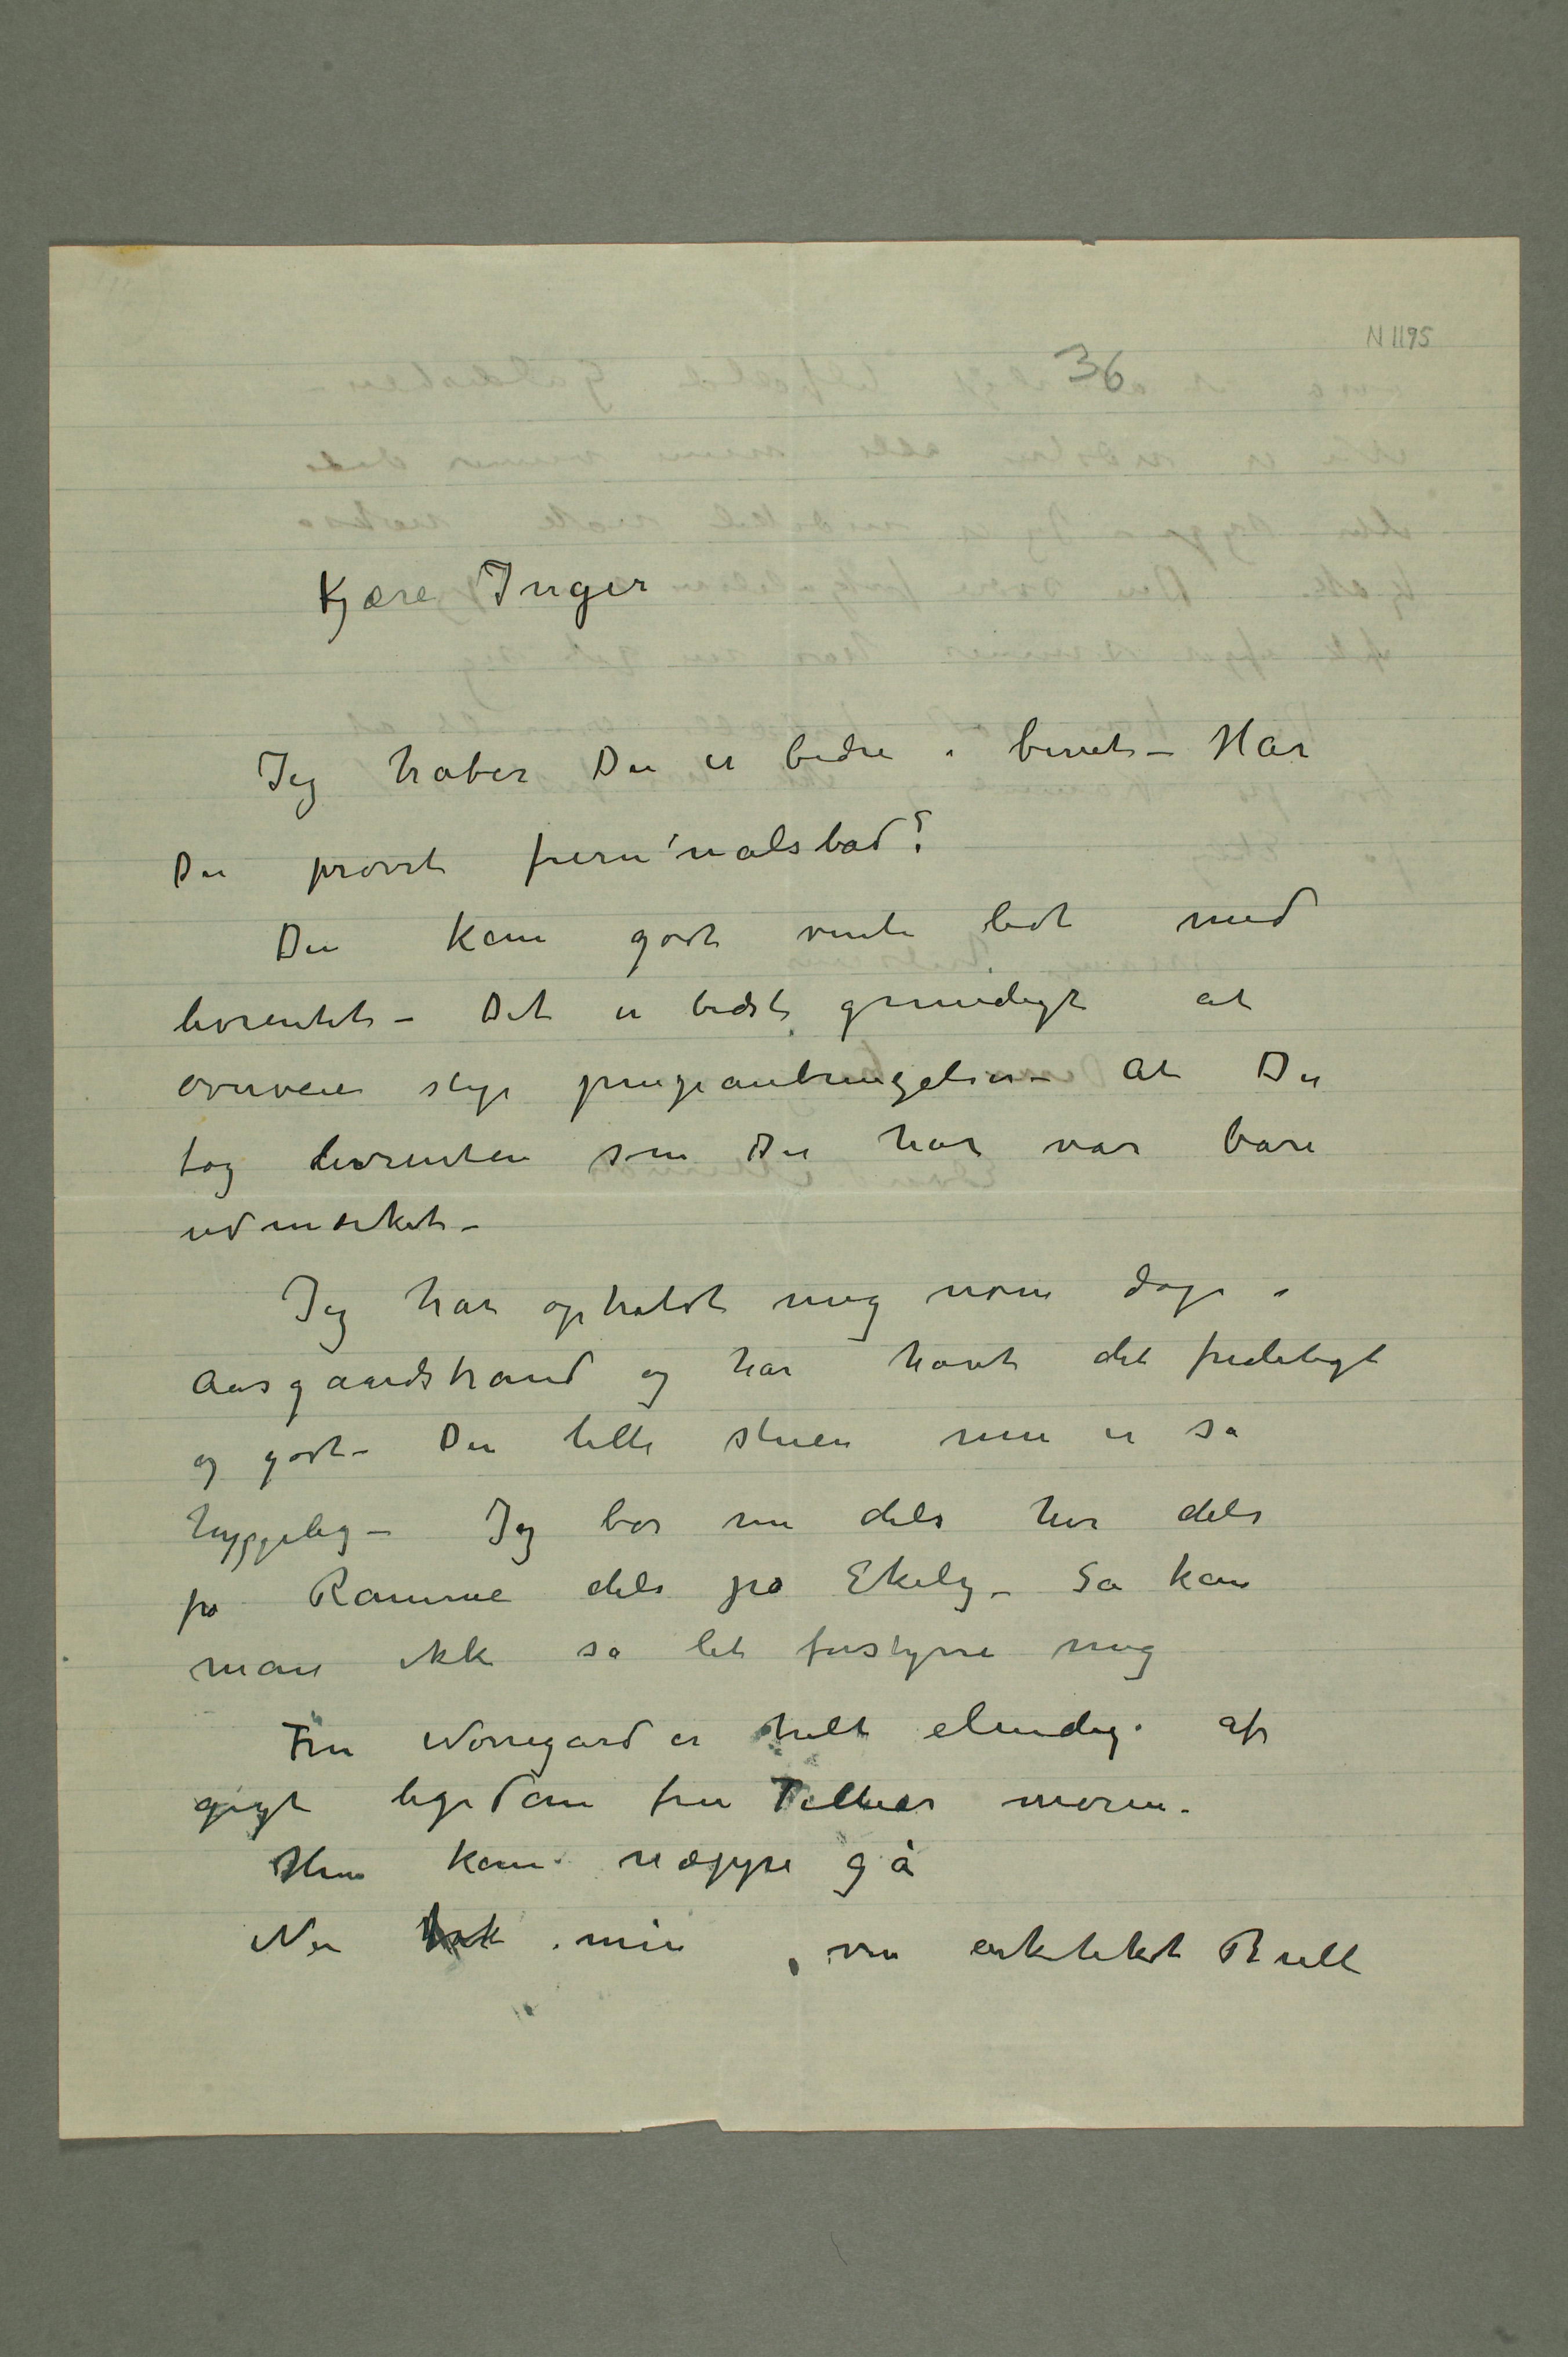 N 1195
36
Kjære Inger
Jeg håber Du er bedre i benet – Har
Du prøvet furunålsbad?
Du kan godt vente lidt med
livrentet – Det er bedst grundigt at
overveie slige pengeanbringelser – At Du
tog livrenten som Du har var bare
udmærket –
Jeg har opholdt mig nogen dage i
Aasgaardstrand og har havt det fredeligt
og godt – Den lille stuen min er så
hyggelig – Jeg bor nu dels her dels
på Ramme dels på Ekely – Så kan
man ikke så let forstyrre mig
Fru Nørregård er helt elendig af
gigt ligesom fru moren.
Hun kan næppe gå
Nu min ven arkitekt Bull